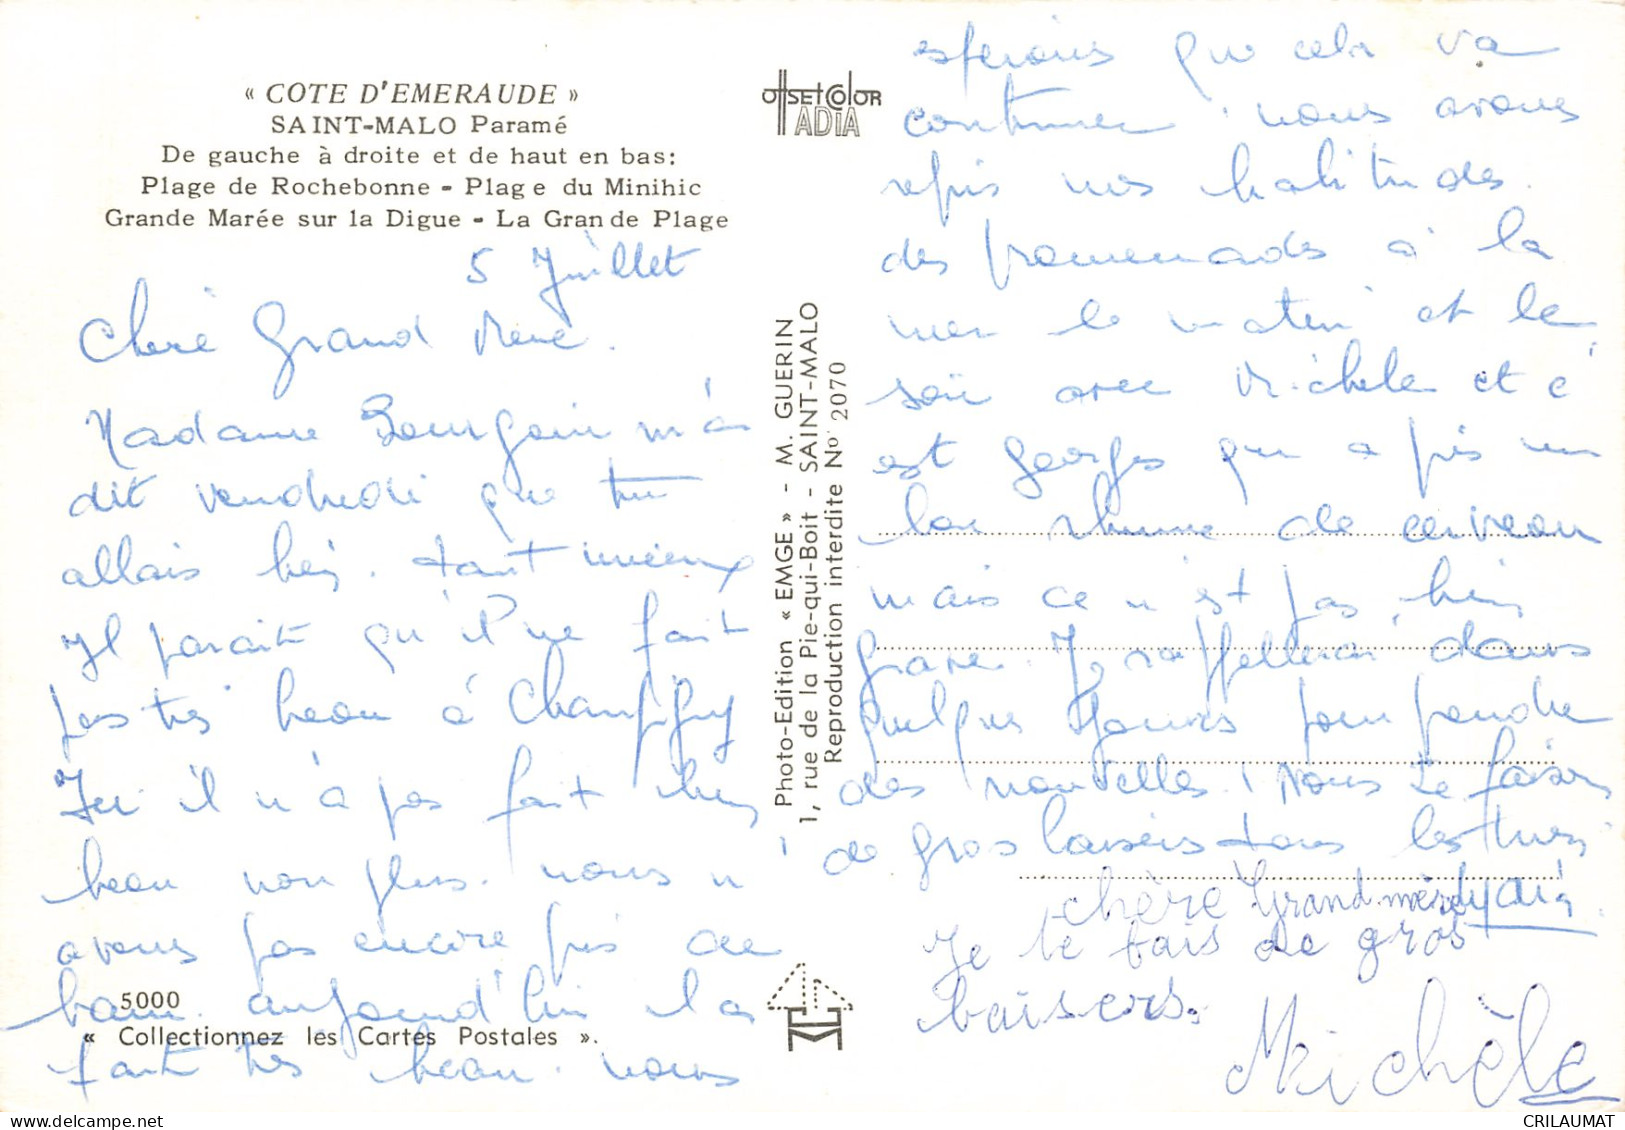 « COTE D'EMERAUDE »
SAINT-MALO Paramé
De gauche à droite et de haut en bas:
Plage de Rochebonne - Plage du Minihic
Grande Marée sur la Digue - La Grande Plage
5 Juillet
Chere Grand Mere.
Madame Bourgoin m'a
dit vendredi que tu
allais bien. tant mieux
Il parait qu'il ne fait
pas tres beau à Champigny
Ici il n'à pas fait bien
beau non plus. nous n
avons pas encore pris de
bain. aujourd'hui il a
fait tres beau. nous
5000
« Collectionnez les Cartes Postales ».
OFFSET COLOR
ADIA
Photo-Edition « EMGE » - M. GUERIN
1, rue de la Pie-qui-Boit - SAINT-MALO
Reproduction interdite No 2070
esperons que cela va
continuer. nous avons
repris nos habitudes.
des promenades à la
mer le matin et le
soir avec Michele et c'
est Georges qui a pris un
bon rhume de cerveau
mais ce n'est pas bien
grave. Je rappellerai dans
quelques jours pour prendre
des nouvelles. Nous te faisons
de gros baisers tous les trois
chère Grand.mère
Je te fais de gros
baisers.
Michèle
CRILAUMAT